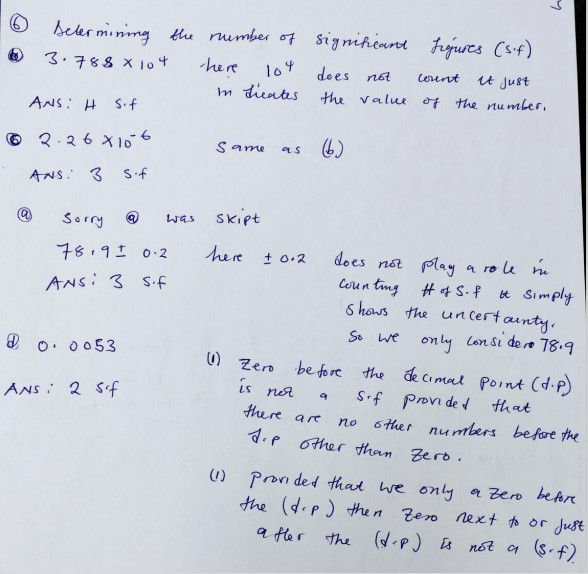 5
⑥ Determining the number of significant figures (s.f)
ⓑ 3.788 × 10⁴ here 10⁴ does not count it just
indicates the value of the number.
ANS: 4 s.f
ⓒ 2.26 × 10⁻⁶ same as (b)
ANS: 3 s.f
ⓐ Sorry ⓐ was skipt
78.9 ± 0.2 here ± 0.2 does not play a role in
ANS: 3 s.f counting # of s.f it simply
shows the uncertainty.
So we only consider 78.9
ⓓ 0.0053
(1) Zero before the decimal point (d.p)
ANS: 2 s.f is not a s.f provided that
there are no other numbers before the
d.p other than zero.
(1) provided that we only a zero before
the (d.p) then zero next to or just
after the (d.p) is not a (s.f)